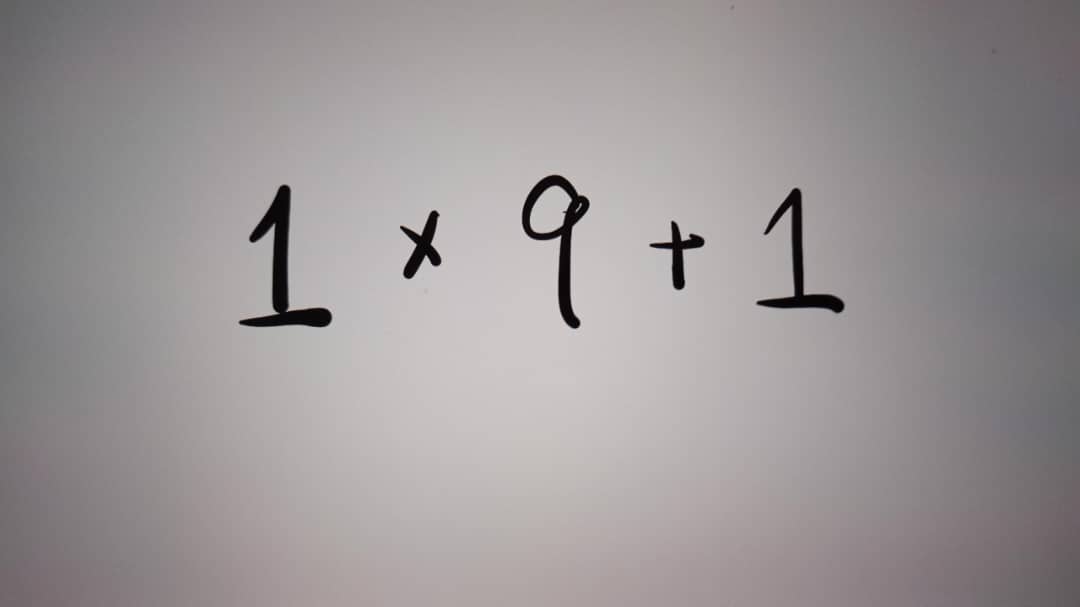 1 × 9 + 1